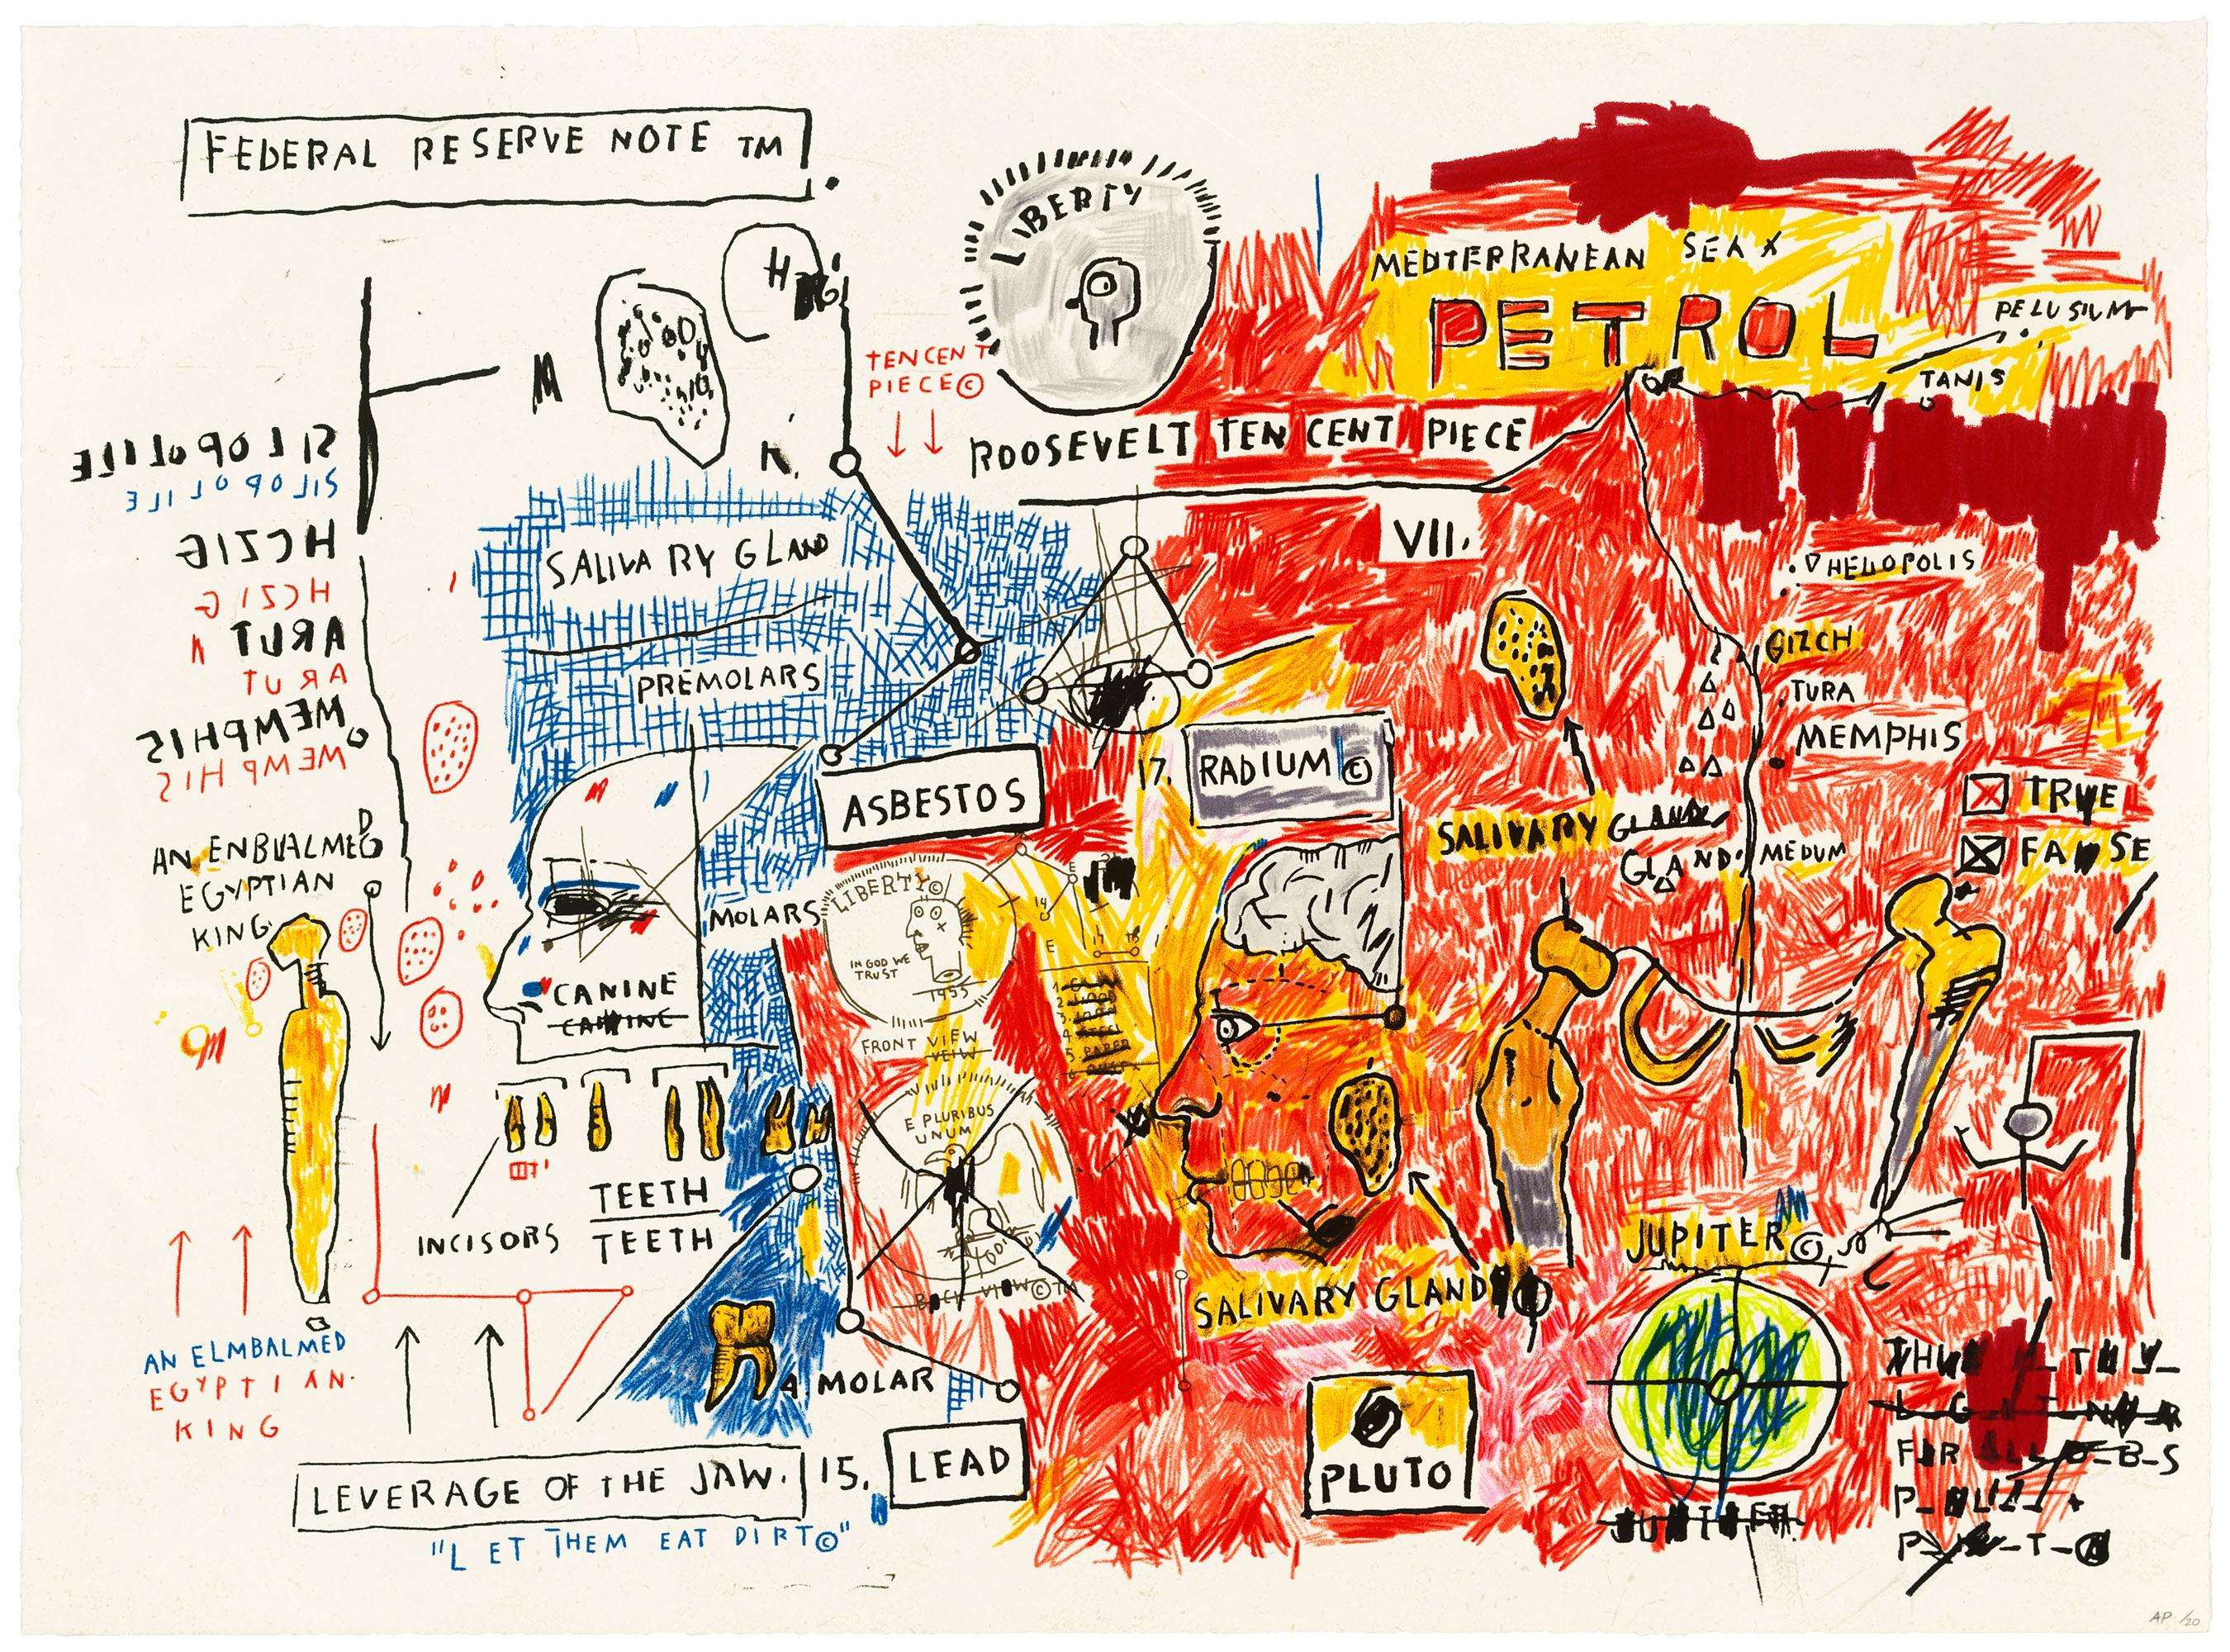 FEDERAL RESERVE NOTE TM
LIBERTY
TEN CENT
PIECE©
ROOSEVELT TEN CENT PIECE
MEDTERRANEAN SEA X
PETROL
PELUSIUM
TANIS
VII.
HELIOPOLIS
GIZCH
TURA
MEMPHIS
MEDUM
TRUE
FALSE
SILOPOLILE
SILOPOLILE
HCZIG
HCZIG
ARUT
ARUT
MEMPHIS
MEMPHIS
AN ENBVALMED
EGYPTIAN
KING
SALIVARY GLAND
PREMOLARS
ASBESTOS
17. RADIUM©
SALIVARY GLAND
GLAND
MOLARS
CANINE
CANINE
LIBERTY©
IN GOD WE
TRUST
1955
FRONT VIEW
VEIW
5 PAPER
E PLURIBUS
UNUM
BACK VIEW©TM
INCISORS
TEETH
TEETH
SALIVARY GLAND
JUPITER©
AN ELMBALMED
EGYPTIAN.
KING
4 MOLAR
LEVERAGE OF THE JAW. 15. LEAD
"LET THEM EAT DIRT©"
PLUTO
JUPITER
AP /20